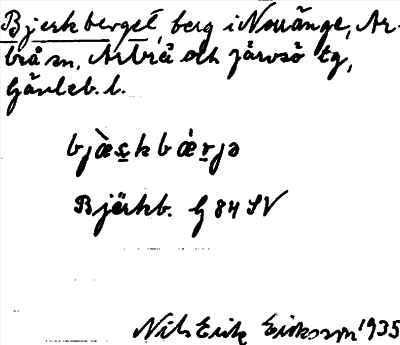 Bjerkberget, berg i Norränge, Ar-
brå sn, Arbrå och Järvsö tg,
Gävleb. l.
bjæ̀ṣkbæ̀r̲jə
Bjärkb. G 84 SV
Nils Erik Eriksson 1935